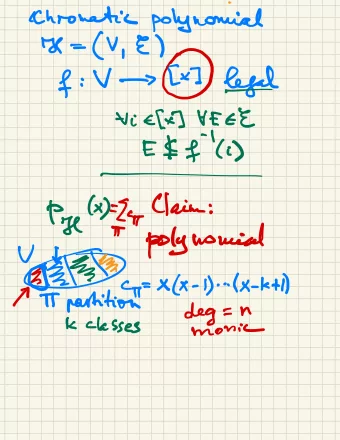 Chromatic polynomial
ℋ = (V, ℰ)
f : V ⟶ [x] legal
∀i ∈ [x] ∀E ∈ ℰ
E ⊈ f⁻¹(i)
p_ℋ(x) = Σ_π c_π Claim:
polynomial
V
π partition c_π = x(x-1)⋯(x-k+1)
k classes deg = n
monic